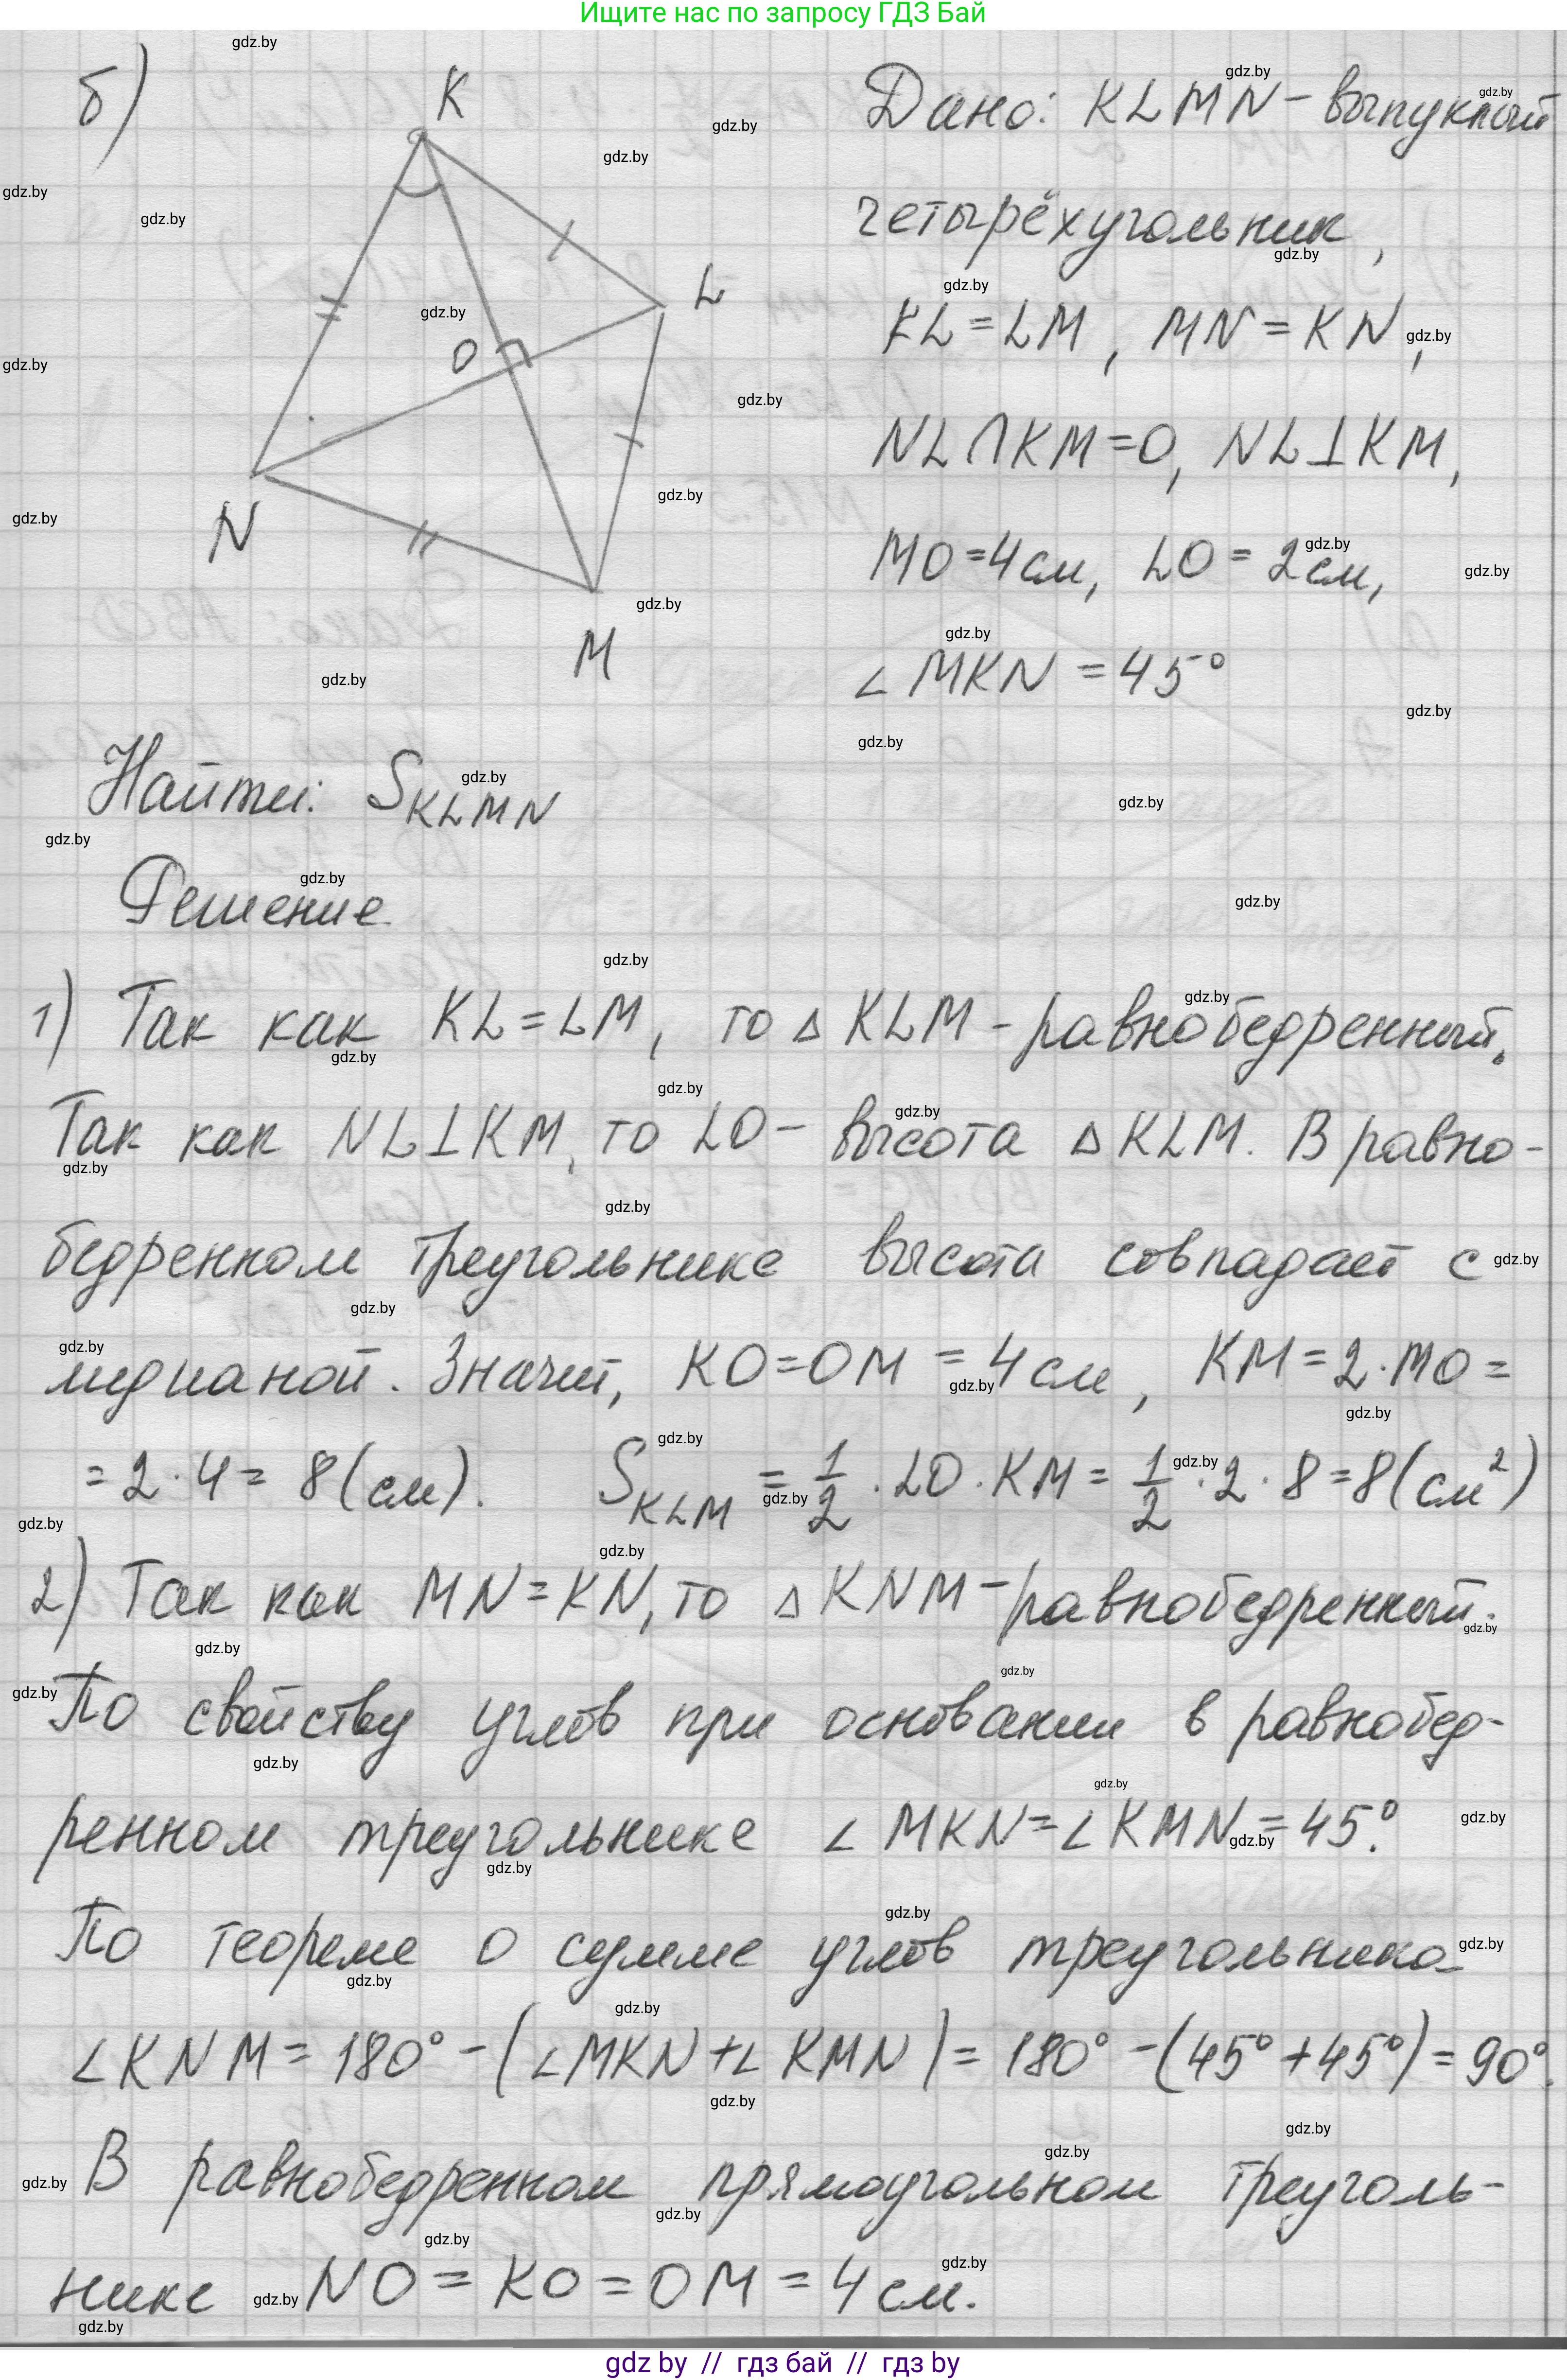 Ищите нас по запросу ГДЗ Бай
б)
K
L
O
N
M
Дано: KLMN - выпуклый
четырёхугольник,
KL = LM, MN = KN,
NL ∩ KM = O, NL ⊥ KM,
MO = 4 см, LO = 2 см,
∠ MKN = 45°
Найти: S KLMN
Решение
1) Так как KL = LM, то △ KLM - равнобедренный.
Так как NL ⊥ KM, то LO - высота △ KLM. В равно-
бедренном треугольнике высота совпадает с
медианой. Значит, KO = OM = 4 см, KM = 2 · MO =
= 2 · 4 = 8 (см). S KLM = 1/2 · LO · KM = 1/2 · 2 · 8 = 8 (см²)
2) Так как MN = KN, то △ KNM - равнобедренный.
По свойству углов при основании в равнобед-
ренном треугольнике ∠ MKN = ∠ KMN = 45°.
По теореме о сумме углов треугольника
∠ KNM = 180° - (∠ MKN + ∠ KMN) = 180° - (45° + 45°) = 90°.
В равнобедренном прямоугольном треуголь-
нике NO = KO = OM = 4 см.
gdz by // гдз бай // gdz by